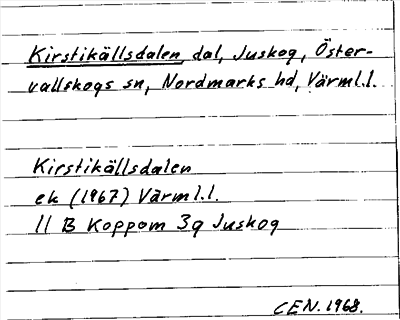 Kirstikällsdalen, dal, Juskog, Öster-
vallskogs sn, Nordmarks hd, Värml.l.
Kirstikällsdalen
ek (1967) Värml.l.
11 B Koppom 3g Juskog
CEN. 1968.